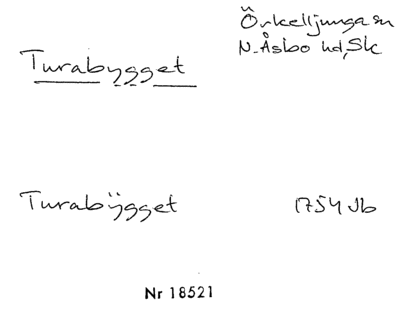 Örkelljunga sn
Turabygget
N. Åsbo hd, Sk
Turabÿgget 1754 Jb
Nr 18521